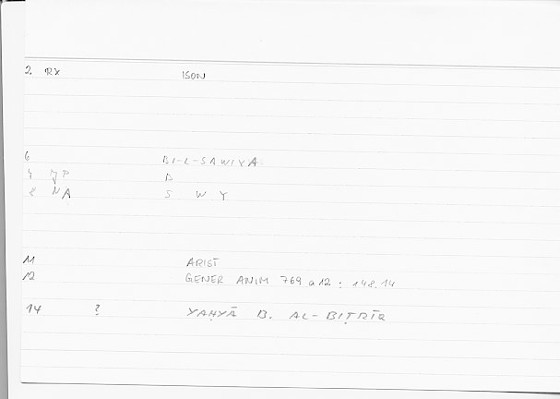 2 RX ISON
6 BI-L-SAWIYA
7 JP B
8 NA S W Y
11 ARIST
12 GENER ANIM 769 a12 : 148.14
14 ? YAḤYĀ B. AL-BIṬRĪQ